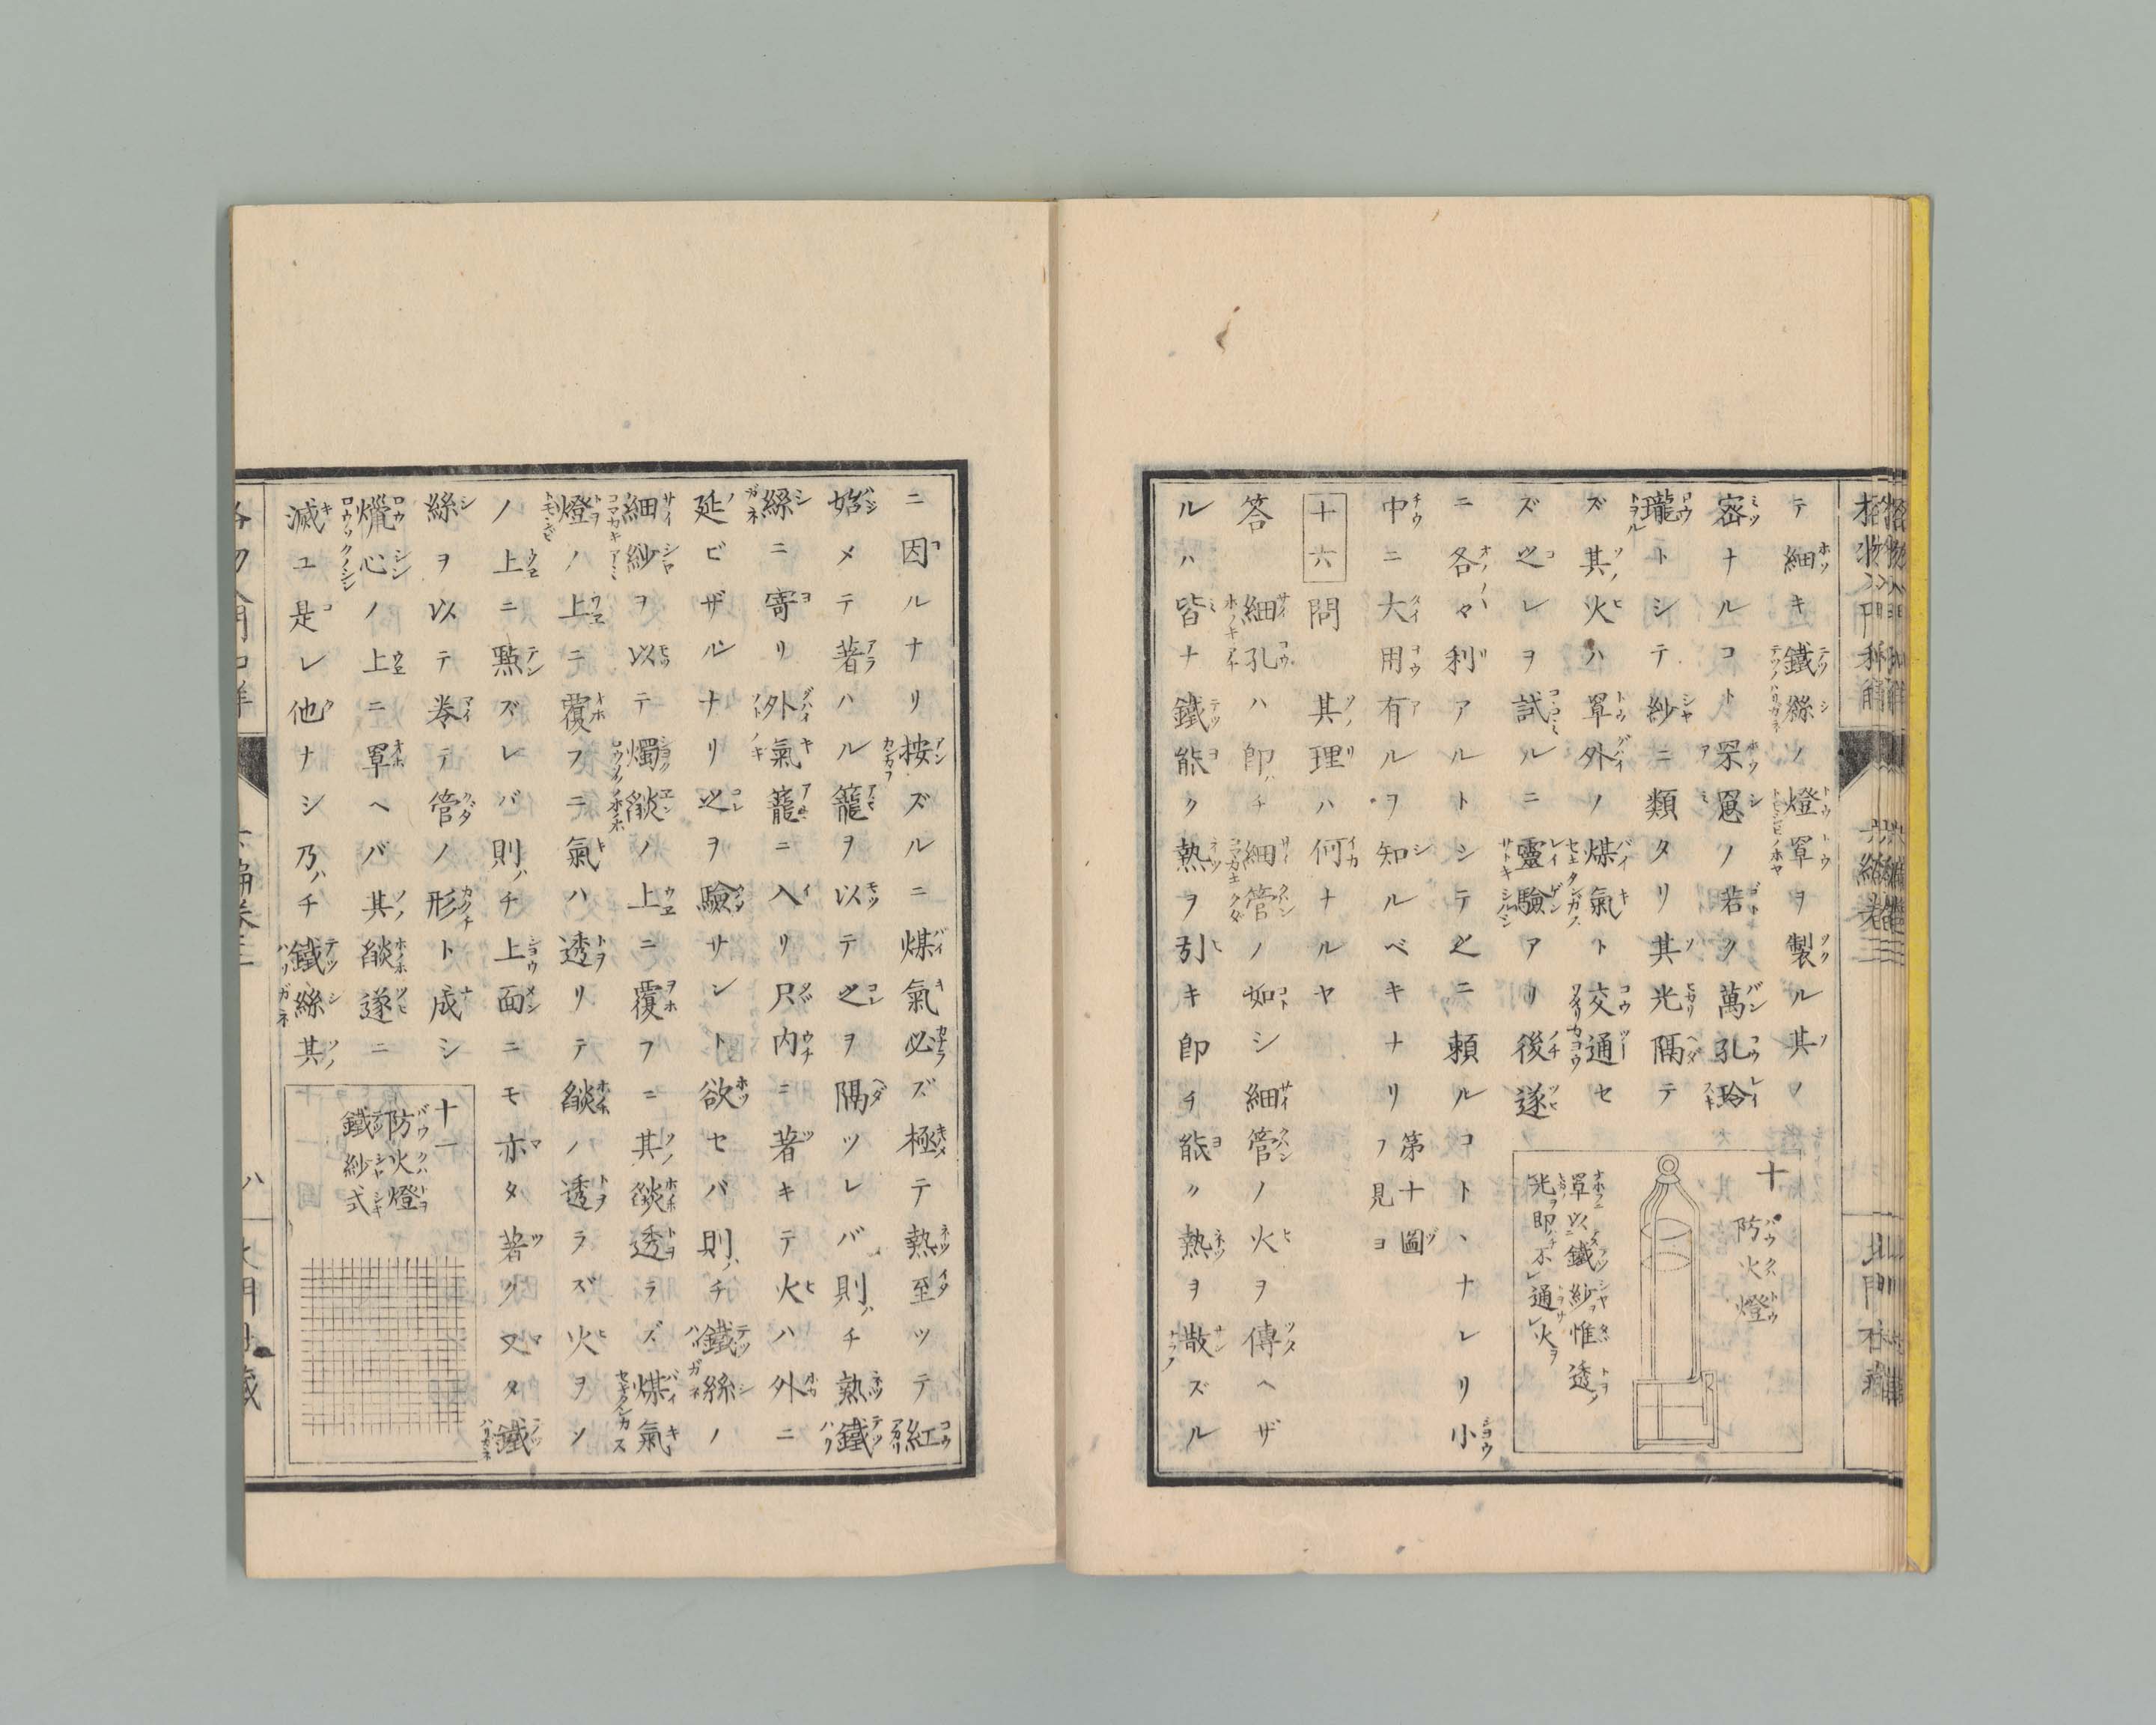 テ細キ鐵絲ノ燈罩ヲ製ル其ノ
密ナルコト罘罳ノ若ク萬孔玲
瓏トシテ紗ニ類タリ其光隔テ
ズ其火ハ罩外ノ煤氣ト交通セ
ズ之レヲ試ルニ靈驗アリ後遂
ニ各々利アルトシテ之ニ頼ルコトヽナレリ小
中ニ大用有ルヲ知ルベキナリ
第十圖
ヲ見ヨ
十
防火燈
罩以鐵紗惟透
光即不通火
十六問其理ハ何ナルヤ
答細孔ハ即チ細管ノ如シ細管ノ火ヲ傳ヘザ
ルハ皆ナ鐵能ク熱ヲ引キ即チ能ク熱ヲ散ズル
ニ因ルナリ按ズルニ煤氣必ズ極テ熱至ツテ紅
始メテ著ハル籠ヲ以テ之ヲ隔ツレバ則チ熱鐵
絲ニ寄リ外氣籠ニ入リ只内ニ著キテ火ハ外ニ
延ビザルナリ之ヲ驗サント欲セバ則チ鐵絲ノ
細紗ヲ以テ燭燄ノ上ニ覆フニ其燄透ラズ煤氣
燈ノ上ニ覆フニ氣ハ透リテ燄ノ透ラズ火ヲン
ノ上ニ點ズレバ則チ上面ニモ亦タ著ク又タ鐵
絲ヲ以テ卷テ管ノ形ト成シ
爉心ノ上ニ罩ヘバ其燄遂ニ
滅ユ是レ他ナシ乃チ鐵絲其
十一
防火燈
鐵紗式